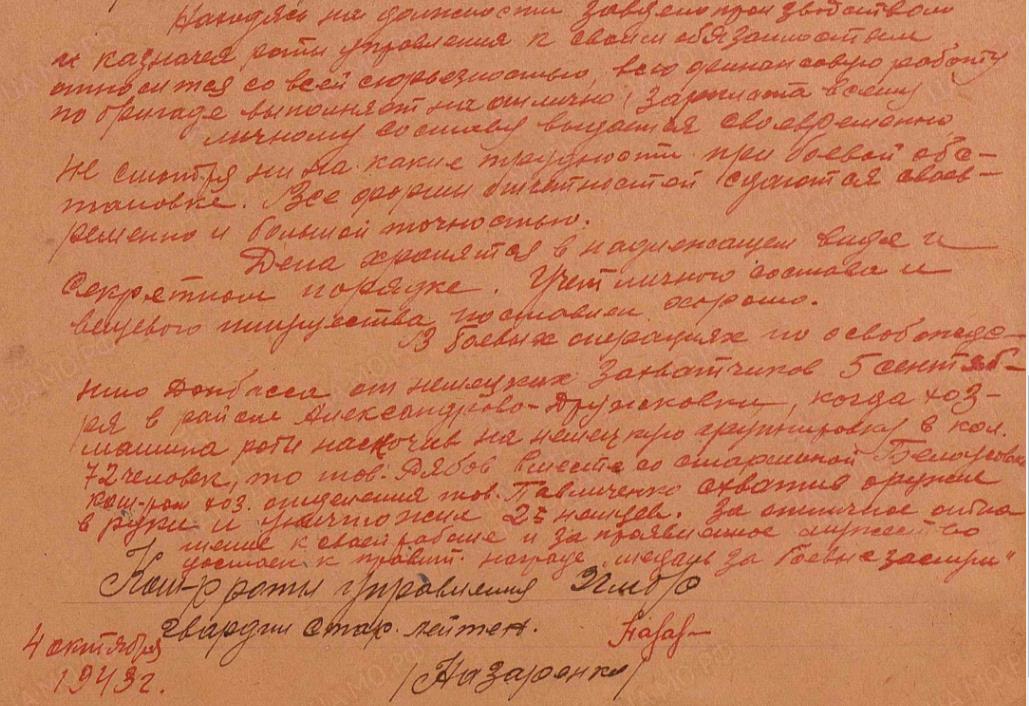 Находясь на должности завделопроизводством
и казначея роты управления к своим обязанностям
относится со всей серьезностью, всю финансовую работу
по бригаде выполняет на отлично, зарплата всему
личному составу выдается своевременно
не смотря ни на какие трудности при боевой обс-
тановке. Все формы отчетностей сдаются своев-
ременно и большой точностью.
Дела хранятся в надлежащем виде и
секретном порядке. Учет личного состава и
вещевого имущества поставлен хорошо.
В боевых операциях по освобожде-
нию Донбасса от немецких захватчиков 5 сентяб-
ря в районе Александрово-Дружковки, когда хоз-
машина роты наскочив на немецкую группировку в кол.
72 человек, то тов. Рябов вместе со старшиной
ком-ром хоз. отделения тов. Павличенко схватив оружие
в руки и уничтожил 2х немцев. За отличное отно-
шение к своей работе и за проявленное мужество
достоин к правит. награде "медаль за боевые заслуги"
Ком-р роты управления
гвардии стар. лейтен.
4 октября
1943г.
/Назаренко/